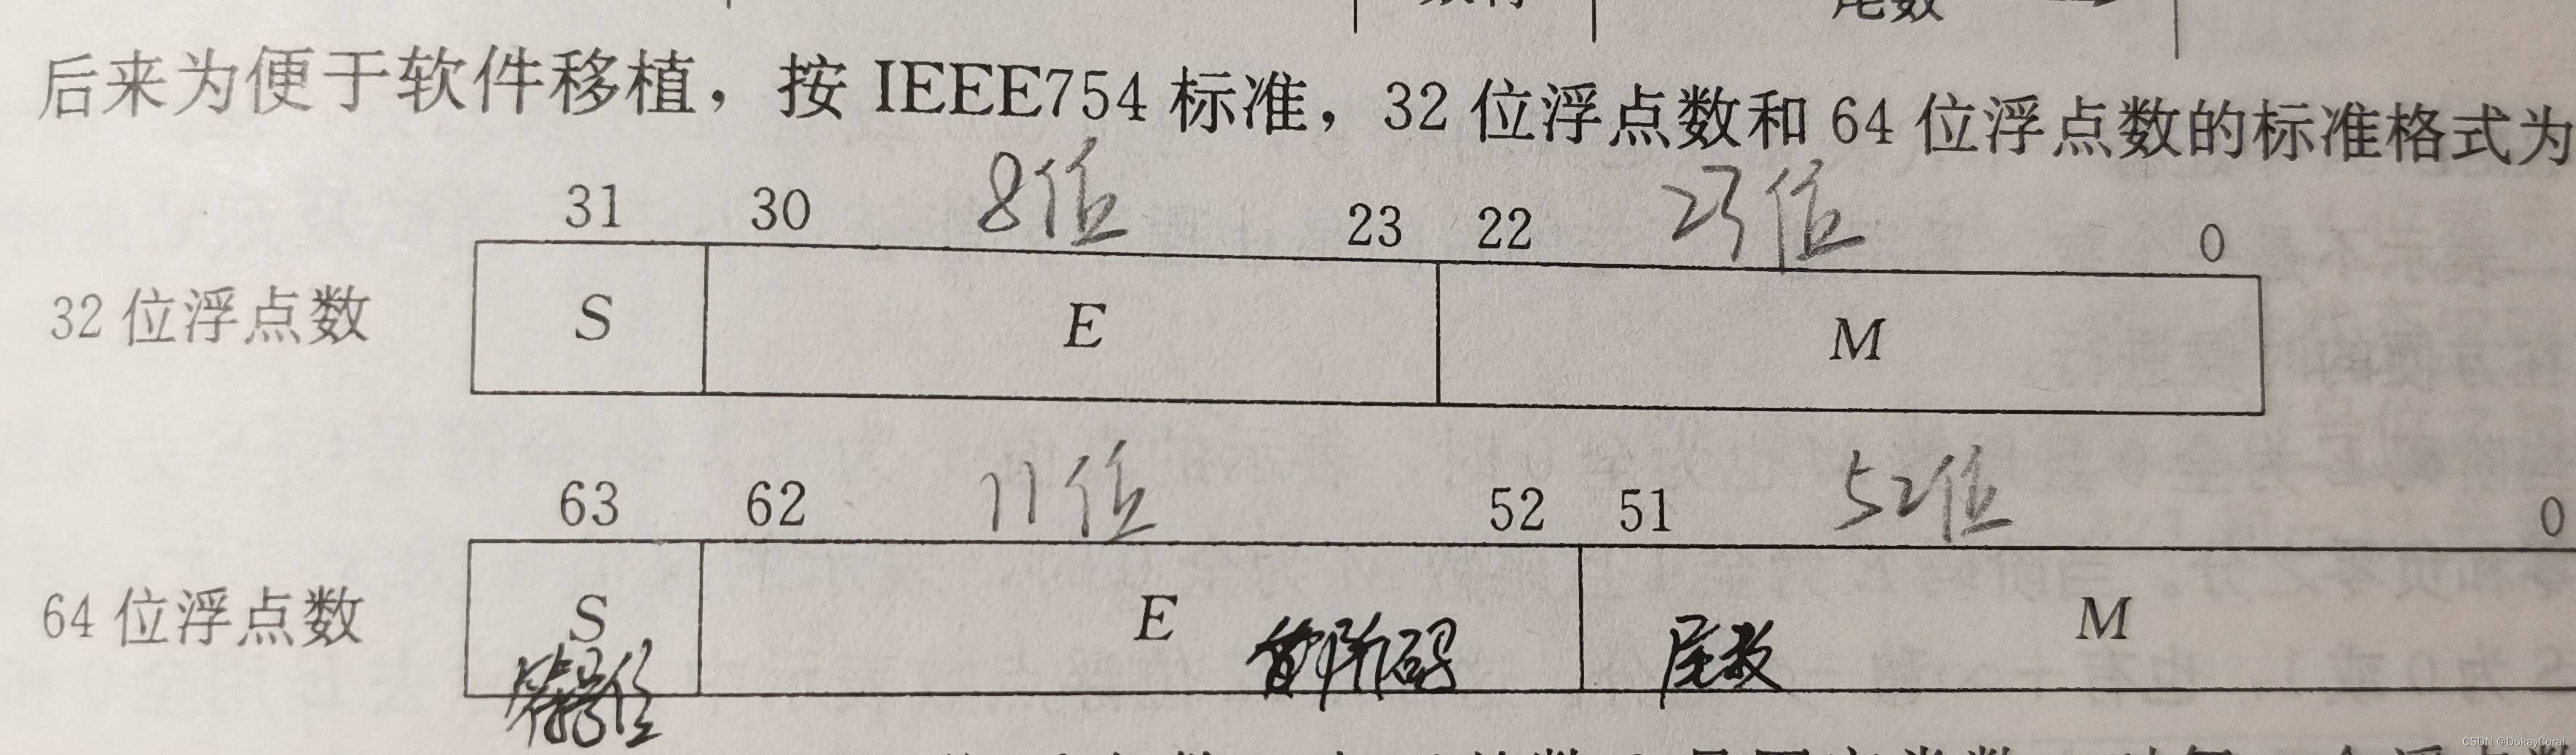 尾数
后来为便于软件移植，按 IEEE754 标准，32 位浮点数和 64 位浮点数的标准格式为
31 30 8位 23 22 23位 0
32 位浮点数 S E M
63 62 11位 52 51 52位 0
64 位浮点数 S E M
符号位 阶码 尾数
CSDN @DokayCoral